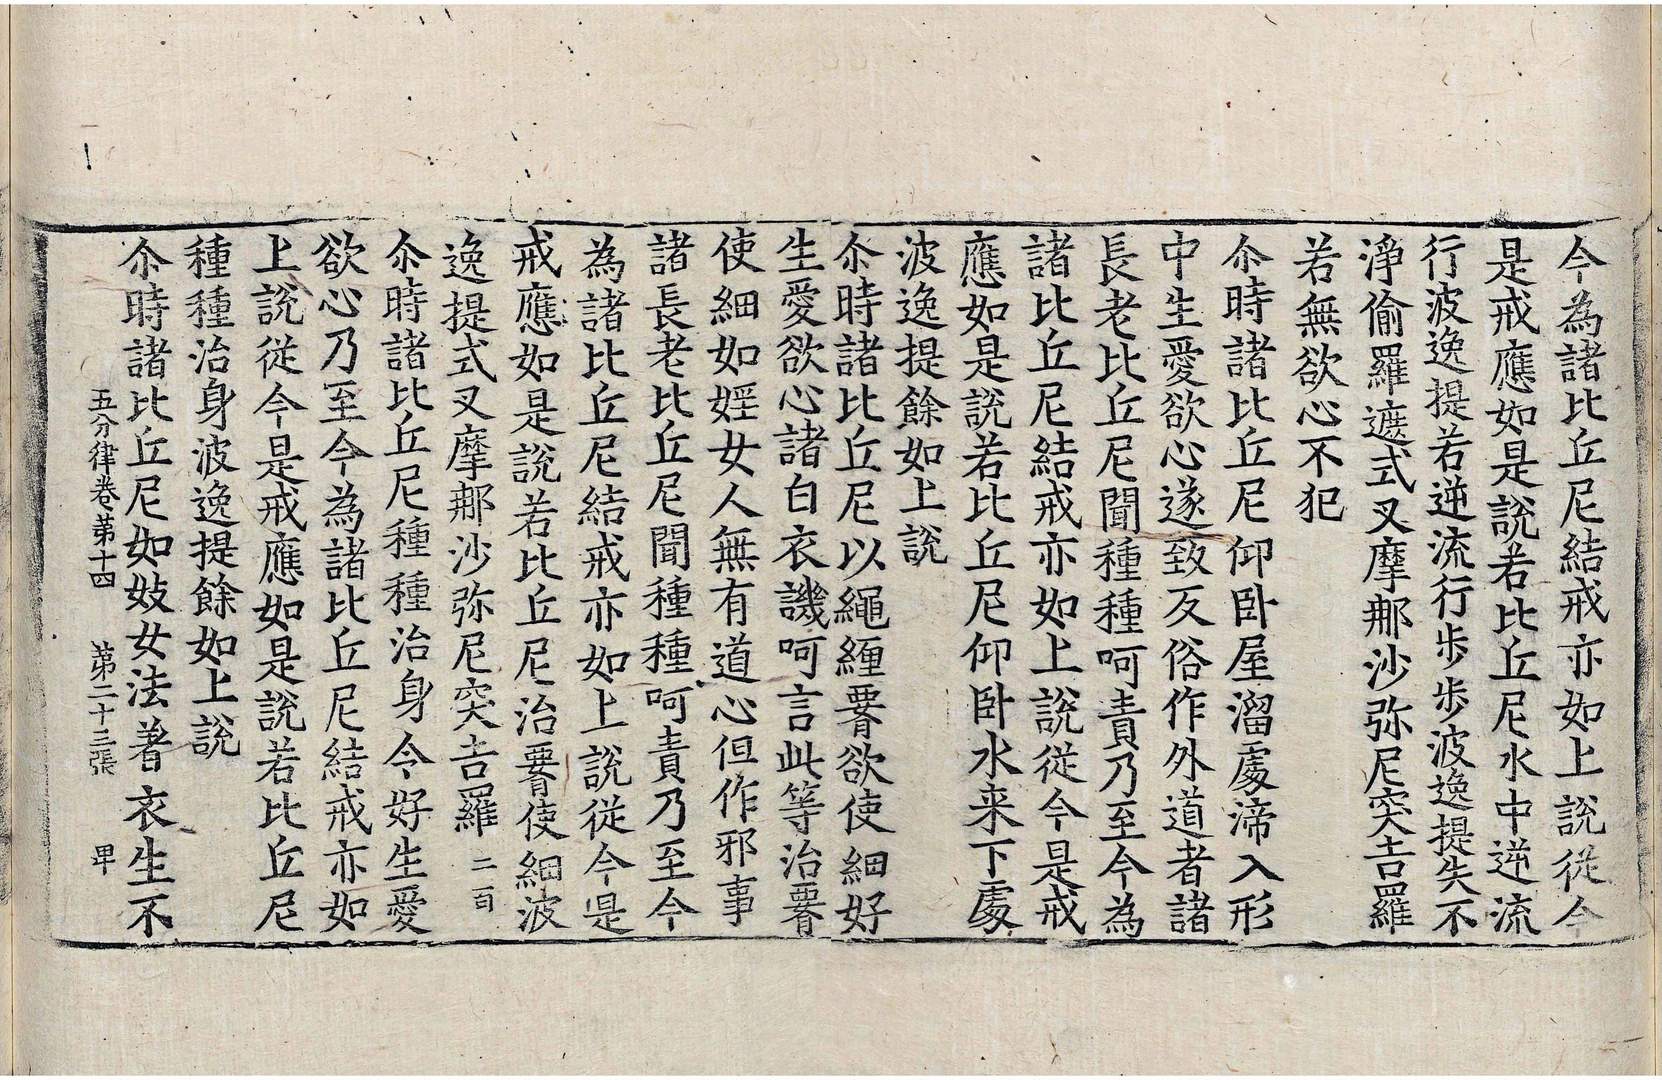 今為諸比丘尼結戒亦如上說從今
是戒應如是說若比丘尼水中逆流
行波逸提若逆流行步步波逸提失不
淨偷羅遮式叉摩那沙弥尼突吉羅
若無欲心不犯
尒時諸比丘尼仰卧屋溜處渧入形
中生愛欲心遂致反俗作外道者諸
長老比丘尼聞種種呵責乃至今為
諸比丘尼結戒亦如上說從今是戒
應如是說若比丘尼仰卧水来下處
波逸提餘如上說
尒時諸比丘尼以繩纏䁖欲使細好
生愛欲心諸白衣譏呵言此等治䁖
使細如婬女人無有道心但作邪事
諸長老比丘尼聞種種呵責乃至今
為諸比丘尼結戒亦如上說從今是
戒應如是說若比丘尼治䁖使細波
逸提式叉摩那沙弥尼突吉羅 二百
尒時諸比丘尼種種治身令好生愛
欲心乃至今為諸比丘尼結戒亦如
上說從今是戒應如是說若比丘尼
種種治身波逸提餘如上說
尒時諸比丘尼如妓女法著衣生不
五分律卷第十四 第二十三張